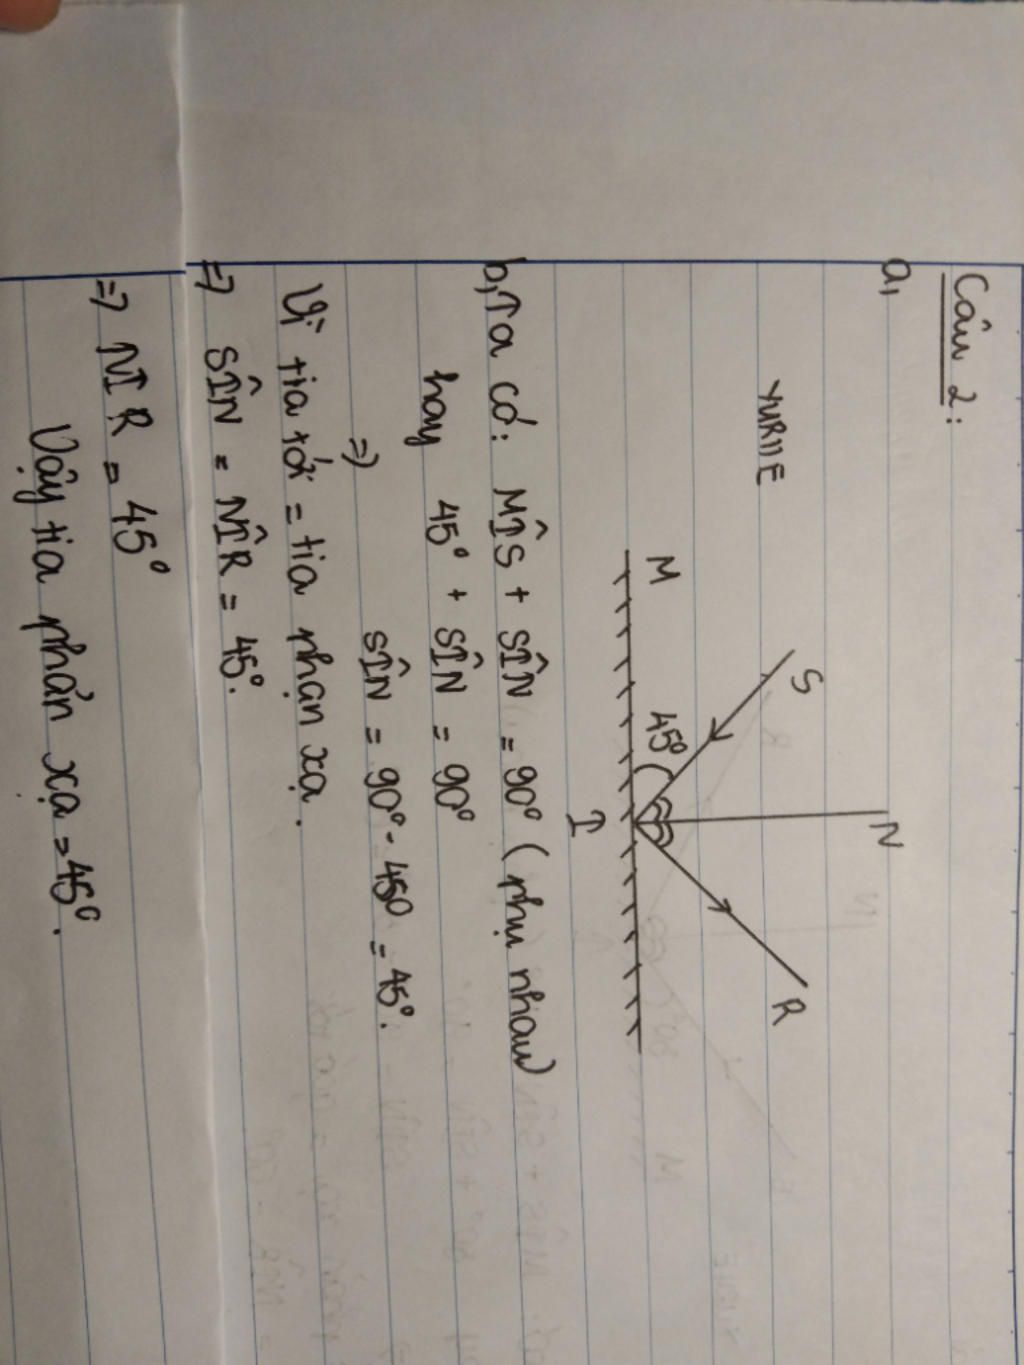 Câu 2:
a,
YURIIE
S
N
R
M
45°
I
b, Ta có: MÎS + SÎN = 90° (phụ nhau)
hay 45° + SÎN = 90°
=> SÎN = 90° - 45° = 45°.
Vì tia tới = tia phạn xạ.
=> SÎN = NÎR = 45°.
=> NIR = 45°
Vậy tia phản xạ = 45°.